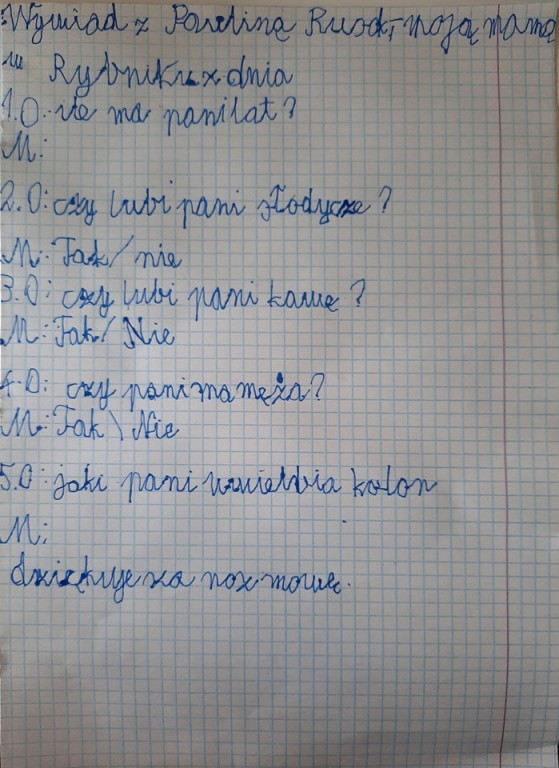 Wywiad z Pauliną Rusok, moją mamą
w Rybniku z dnia
1.O: ile ma pani lat?
M:
2.O: czy lubi pani słodycze?
M: Tak/ nie
3.O: czy lubi pani kawę?
M: Tak/ Nie
4.O: czy pani ma męża?
M: Tak \ Nie
5.O: jaki pani uwielbia kolor
M:
dziękuje za rozmowę.